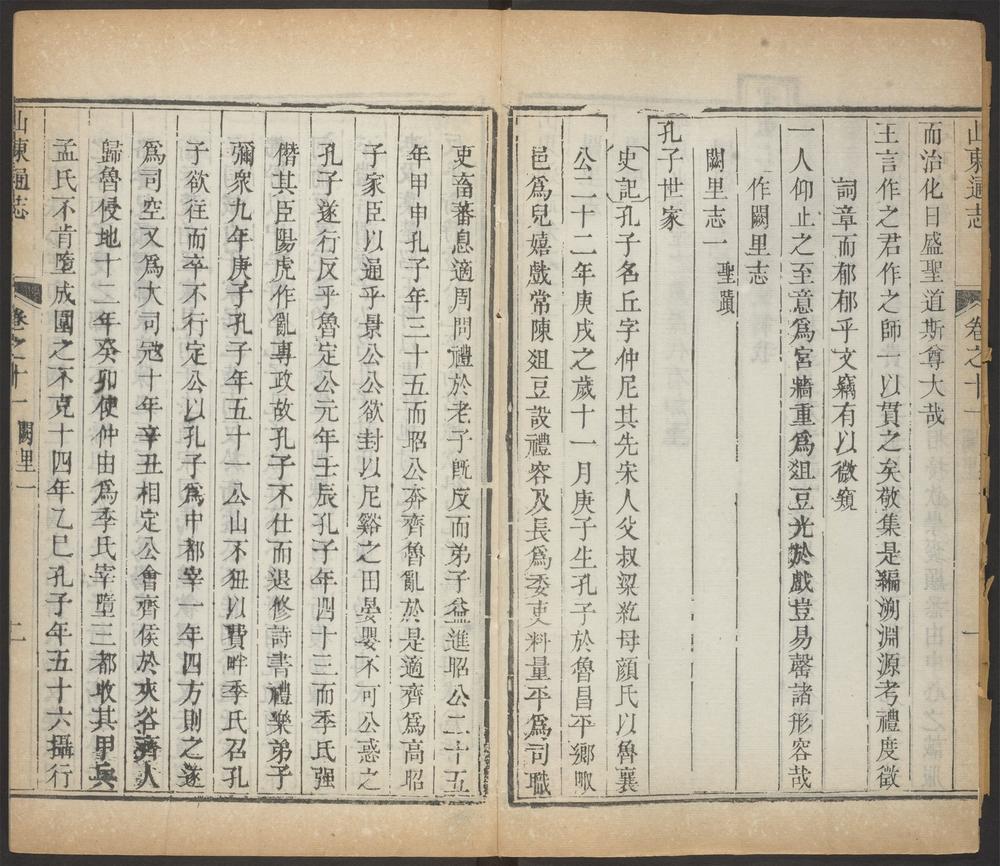 山東通志
卷之十一
一
而治化日盛聖道斯尊大哉
王言作之君作之師一以貫之矣敬集是編溯淵源考禮度徵
詞章而郁郁乎文竊有以微窺
一人仰止之至意爲宮牆重爲俎豆光於戲豈易罄諸形容哉
作闕里志
闕里志一 聖蹟
孔子世家
史記孔子名丘字仲尼其先宋人父叔梁紇母顏氏以魯襄
公二十二年庚戌之歲十一月庚子生孔子於魯昌平鄉陬
邑爲兒嬉戲常陳俎豆設禮容及長爲委吏料量平爲司職
吏畜蕃息適周問禮於老子旣反而弟子益進昭公二十五
年甲申孔子年三十五而昭公奔齊魯亂於是適齊爲高昭
子家臣以通乎景公公欲封以尼谿之田晏嬰不可公惑之
孔子遂行反乎魯定公元年壬辰孔子年四十三而季氏强
僭其臣陽虎作亂專政故孔子不仕而退修詩書禮樂弟子
彌衆九年庚子孔子年五十一公山不狃以費畔季氏召孔
子欲往而卒不行定公以孔子爲中都宰一年四方則之遂
爲司空又爲大司冦十年辛丑相定公會齊侯於夾谷齊人
歸魯侵地十二年癸卯使仲由爲季氏宰墮三都收其甲兵
孟氏不肯墮成圍之不克十四年乙巳孔子年五十六攝行
山東通志
卷之十一 闕里一
二